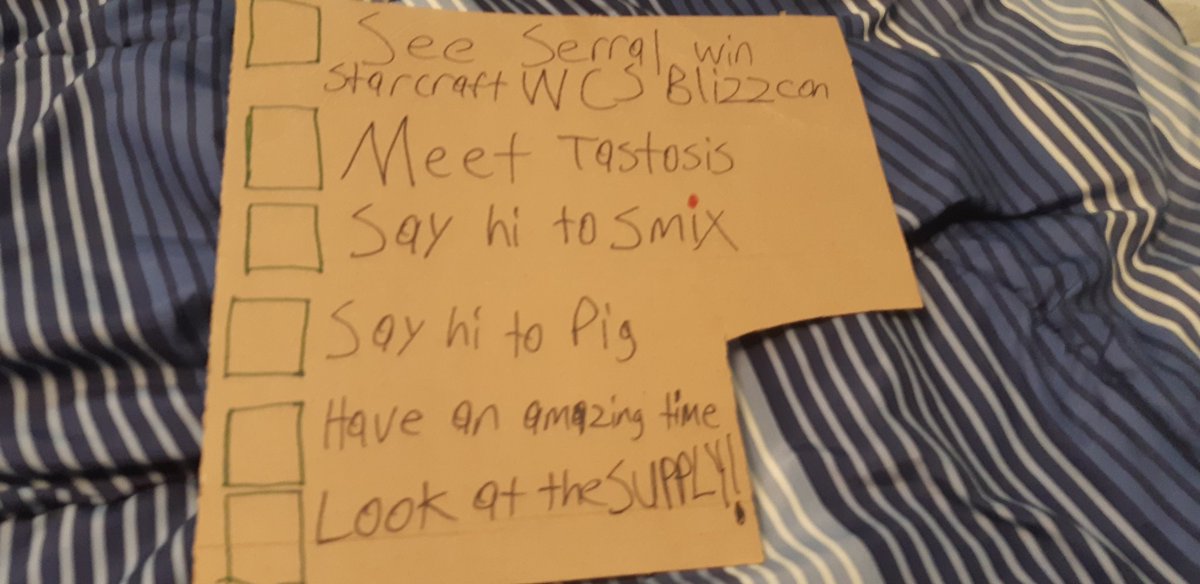 See Serral win
Starcraft WCS Blizzcon
Meet Tastosis
Say hi to Smix
Say hi to Pig
Have an amazing time
Look at the SUPPLY!